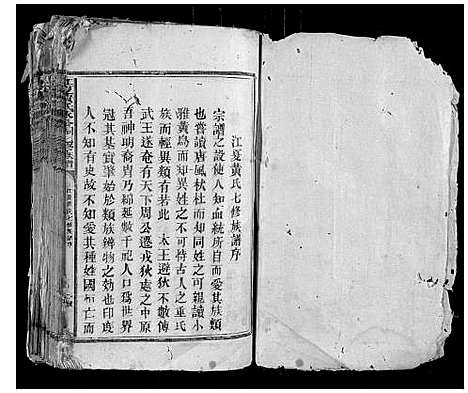 江夏黃氏七修族譜序
宗譜之設使人知血統所自而愛其族類
也嘗讀唐風杕杜而知同姓之可親讀小
雅黃鳥而知異姓之不可恃古人之重氏
族而輕異類有若此　太王避狄不數傳
武王遂奄有天下周公遷戎狄處之中原
吾神明裔胄乃綿延數千祀人口爲世界
冠其基實肇始於類族辨物之効也印度
人不知有史故不知愛其種姓國亡而